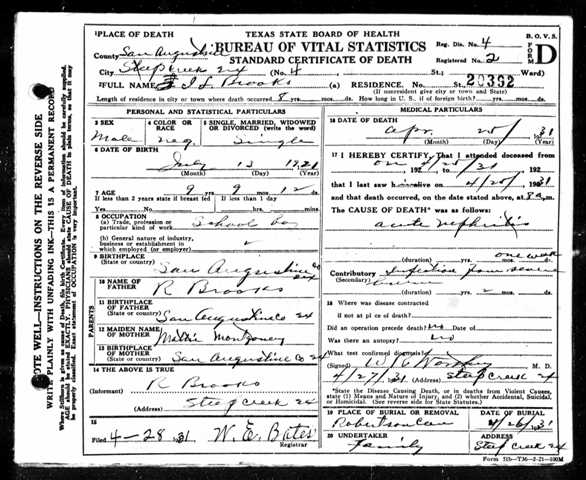 1 PLACE OF DEATH
TEXAS STATE BOARD OF HEALTH
B. O. V. S.
County San Augustine
BUREAU OF VITAL STATISTICS
Reg. Dis. No. 4
FORM D
City Steep Creek
STANDARD CERTIFICATE OF DEATH
Registered No. 2
(No. 4 St.; Ward)
2 FULL NAME Brooks
(a) RESIDENCE. No. St.; 20392
(If nonresident give city or town and State)
Length of residence in city or town where death occurred 8 yrs. mos. ds. How long in U. S., if of foreign birth? yrs. mos. ds.
PERSONAL AND STATISTICAL PARTICULARS
3 SEX
Male
4 COLOR OR RACE
neg
5 SINGLE, MARRIED, WIDOWED OR DIVORCED (write the word)
Single
6 DATE OF BIRTH
July 13 1921
(Month) (Day) (Year)
7 AGE
9 9 12
If less than 2 years state if breast fed If less than 1 day
Yes No hrs. min.
8 OCCUPATION
(a) Trade, profession or particular kind of work School boy
(b) General nature of industry, business or establishment in which employed (or employer)
9 BIRTHPLACE
(State or country) San Augustine Co
PARENTS
10 NAME OF FATHER
R Brooks
11 BIRTHPLACE OF FATHER
(State or country) San Augustine Co
12 MAIDEN NAME OF MOTHER Mattie Montgomery
13 BIRTHPLACE OF MOTHER
(State or country) San Augustine Co
14 THE ABOVE IS TRUE
(Informant) R Brooks
(Address) Steep Creek
15
Filed 4-28-31 W. E. Bates
Registrar
MEDICAL PARTICULARS
16 DATE OF DEATH
Apr. 25 31
(Month) (Day) (Year)
17 I HEREBY CERTIFY, That I attended deceased from
on 4/25/31 192
that I last saw him alive on 4/25/ 1931
and that death occurred, on the date stated above, at 8 a m.
The CAUSE OF DEATH* was as follows:
acute nephritis
(duration) yrs. mos. one week ds.
Contributory Infection from
(Secondary)
(duration) yrs. 2 mos. ds.
18 Where was disease contracted
if not at place of death?
Did an operation precede death? no Date of
Was there an autopsy? no
What test confirmed diagnosis?
(Signed) M. D.
4/27/31 (Address) Steep Creek
*State the Disease Causing Death, or in deaths from Violent Causes, state (1) Means and Nature of Injury, and (2) Whether Accidental, Suicidal, or Homicidal. (See reverse side for State Statutes.)
19 PLACE OF BURIAL OR REMOVAL
Robertson Cem
DATE OF BURIAL
4/26/31
20 UNDERTAKER
family
ADDRESS
Steep Creek
WRITE PLAINLY WITH UNFADING INK—THIS IS A PERMANENT RECORD
NOTE WELL—INSTRUCTIONS ON THE REVERSE SIDE